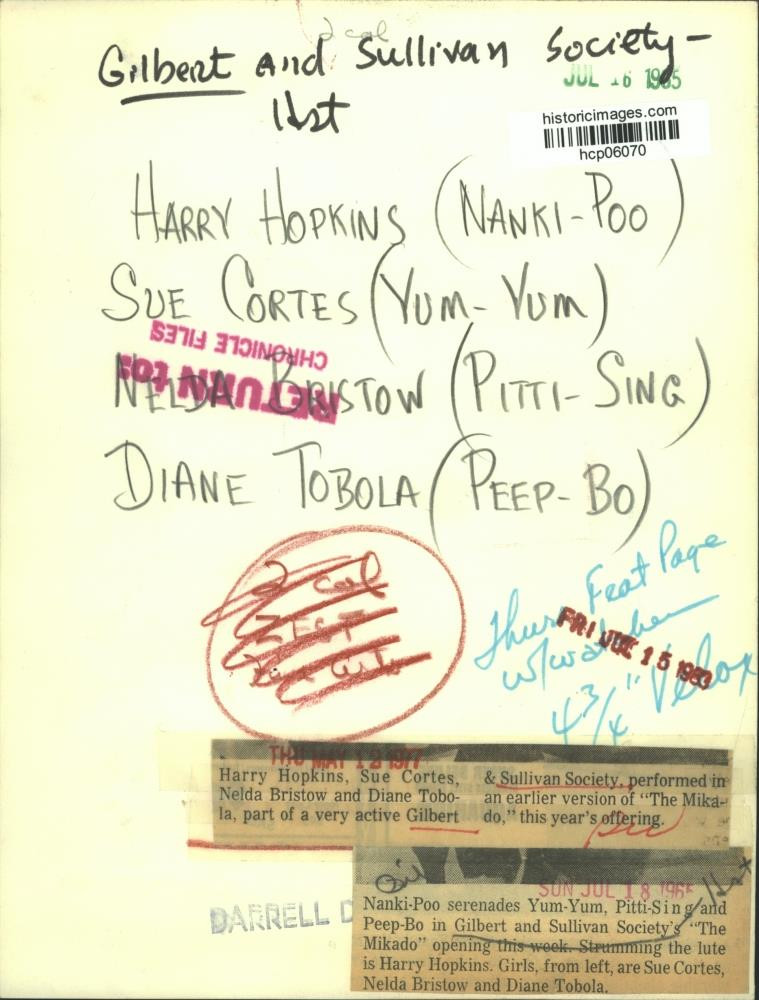 2 col
Gilbert and Sullivan Society -
Hst
JUL 16 1985
historicimages.com
hcp06070
HARRY HOPKINS (NANKI-POO)
SUE CORTES (YUM-YUM)
RETURN to:
CHRONICLE FILES
NELDA BRISTOW (PITTI-SING)
DIANE TOBOLA (PEEP-BO)
2 col
ZEST
Thurs Feat Page
FRI JUL 15 1983
4 3/4" Velox
THU MAY 12 1977
Harry Hopkins, Sue Cortes,
Nelda Bristow and Diane Tobo-
la, part of a very active Gilbert
& Sullivan Society, performed in
an earlier version of "The Mika-
do," this year's offering.
DARRELL D
SUN JUL 18 196
Hst
Nanki-Poo serenades Yum-Yum, Pitti-Sing and
Peep-Bo in Gilbert and Sullivan Society's "The
Mikado" opening this week. Strumming the lute
is Harry Hopkins. Girls, from left, are Sue Cortes,
Nelda Bristow and Diane Tobola.